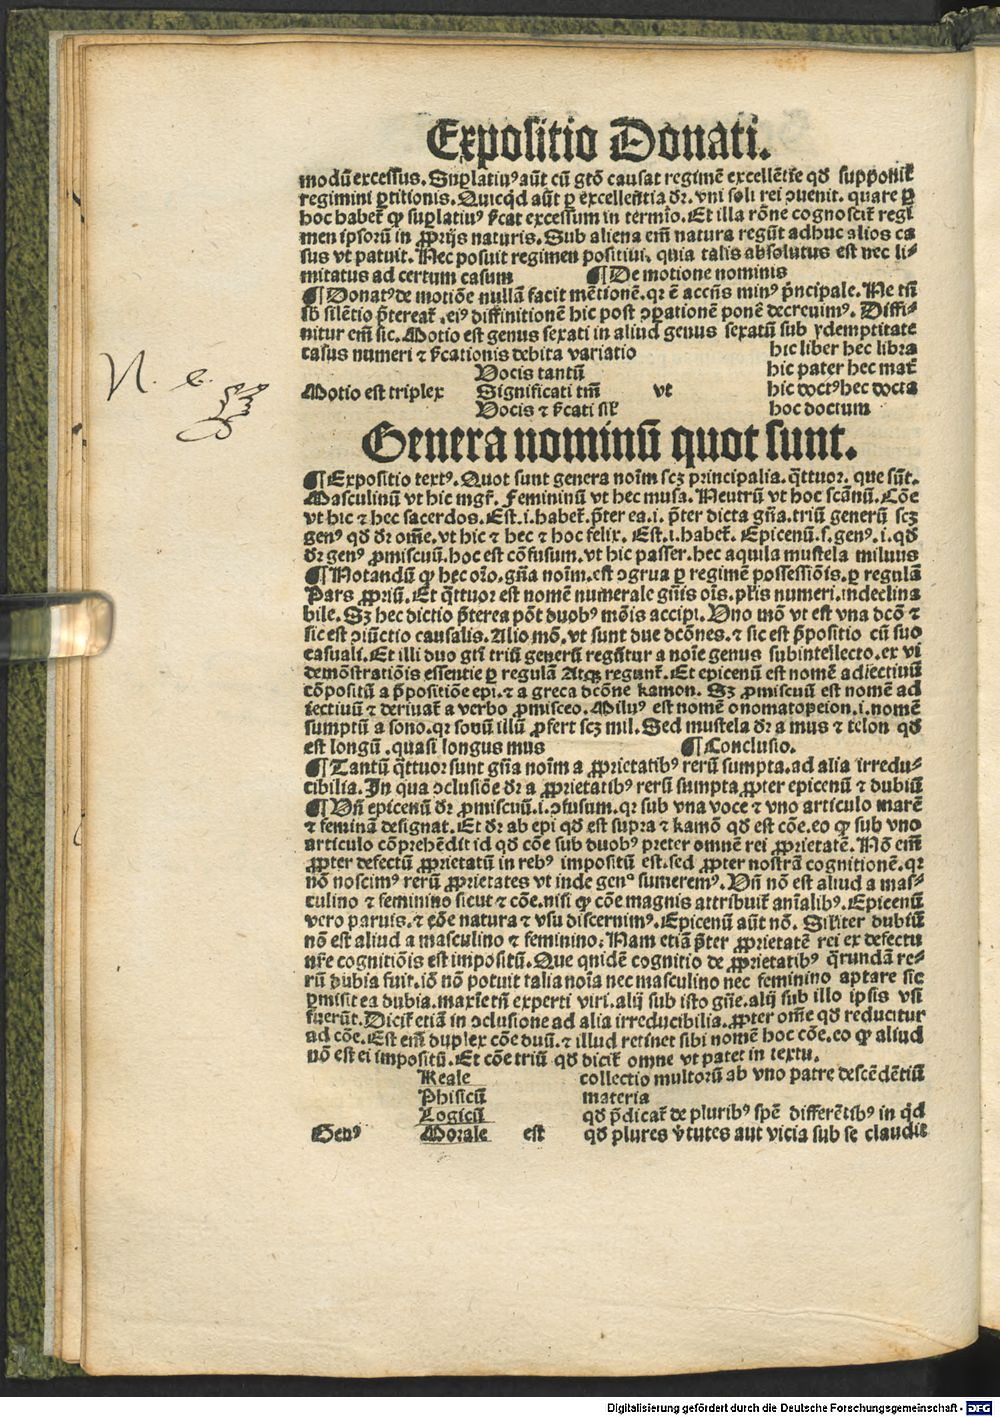 Expositio Donati.
modū excessus. Suꝑlatiuꝰ aūt cū gtō causat regimē excellētie qđ supponit᷑
regimini ꝑtitionis. Quicqd̄ aūt ꝑ excellentiā dr̄. vni soli rei ↄuenit. quare ꝑ
hoc habet᷑ ꝙ suꝑlatiuꝰ ſ̄cat excessum in termīo. Et illa rōne cognoscit᷑ regi
men ipsorū in ꝓprijs naturis. Sub aliena em̄ natura regūt adhuc alios ca
sus vt patuit. Nec posuit regimen positiui. quia talis absolutus est nec li-
mitatus ad certum casum ¶ De motione nominis
¶ Donatꝰ de motiōe nullā facit mētionē. qr ē accn̄s minꝰ pn̄cipale. Ne tn̄
sb̄ silētio p̄tereat᷑. eiꝰ diffinitionē hic post ↄꝑationē ponē decreuimꝰ. Diffi-
nitur em̄ sic. Motio est genus sexati in aliud genus sexatū sub ydemptitate
casus numeri ⁊ ſ̄cationis debita variatio hic liber hec libra
Vocis tantū hic pater hec mat᷑
Motio est triplex Significati tm̄ vt hic doctꝰ hec docta
Vocis ⁊ ſ̄cati sil᷑ hoc doctum
N. b.
Genera nominū quot sunt.
¶ Expositio textꝰ. Quot sunt genera noīm scꝫ principalia. q̄ttuor. que sūt.
Masculinū vt hic mgr̄. Femininū vt hec musa. Neutrū vt hoc scānū. Cōe
vt hic ⁊ hec sacerdos. Est. i. habet᷑. p̄ter ea. i. p̄ter dicta gn̄a. triū generū scꝫ
genꝰ qđ dr̄ om̄e. vt hic ⁊ hec ⁊ hoc felix. Est. i. habet᷑. Epicenū. s. genꝰ. i. qđ
dr̄ genꝰ ꝓmiscuū. hoc est cōfusum. vt hic passer. hec aquila mustela miluus
¶ Notandū ꝙ hec orō. gn̄a noīm. est ↄgrua ꝑ regimē possessiōis. ꝑ regulā
Pars ꝓpriū. Et q̄ttuor est nomē numerale gn̄is oīs. plīs numeri. indeclina
bile. Sꝫ hec dictio p̄terea pōt duobꝰ mōis accipi. Vno mō vt est vna dcō ⁊
sic est ↄiūctio causalis. Alio mō. vt sunt due dcōnes. ⁊ sic est p̄positio cū suo
casuali. Et illi duo gti triū generū regūtur a noīe genus subintellecto. ex vi
demōstratiōis essentie ꝑ regulā Atqꝫ regunt᷑. Et epicenū est nomē adiectiuū
cōpositū a p̄positiōe epi. ⁊ a greca dcōne kamon. Sꝫ ꝓmiscuū est nomē ad
iectiuū ⁊ deriuat᷑ a verbo ꝓmisceo. Miluꝰ est nomē onomatopeion. i. nomē
sumptū a sono. qr sonū illū ꝓfert scꝫ mil. Sed mustela dr̄ a mus ⁊ telon qđ
est longū. quasi longus mus ¶ Conclusio.
¶ Tantū q̄ttuor sunt gn̄a noīm a ꝓprietatibꝰ rerū sumpta. ad alia irredu-
cibilia. In qua ↄclusiōe dr̄ a ꝓprietatibꝰ rerū sumpta ꝓpter epicenū ⁊ dubiū
¶ Vn̄ epicenū dr̄ ꝓmiscuū. i. ↄfusum. qr sub vna voce ⁊ vno articulo marē
⁊ feminā designat. Et dr̄ ab epi qđ est supra ⁊ kamō qđ est cōe. eo ꝙ sub vno
articulo cōprehēdit id qđ cōe sub duobꝰ preter omnē rei ꝓprietatē. Nō em̄
ꝓpter defectū ꝓprietatū in rebꝰ impositū est. sed ꝓpter nostrā cognitionē. qr
nō noscimꝰ rerū ꝓprietates vt inde genꝰ sumeremꝰ. Vn̄ nō est aliud a mas-
culino ⁊ feminino sicut ⁊ cōe. nisi ꝙ cōe magnis attribuit᷑ aīalibꝰ. Epicenū
vero paruis. ⁊ cōe natura ⁊ vsu discernimꝰ. Epicenū aūt nō. Siliter dubiū
nō est aliud a masculino ⁊ feminino. Nam etiā p̄ter ꝓprietatē rei ex defectu
nr̄e cognitiōis est impositū. Que quidē cognitio de ꝓprietatibꝰ q̄rundā re-
rū dubia fuit. iō nō potuit talia noīa nec masculino nec feminino aptare sic
ꝑmisit ea dubia. maxīe tn̄ experti viri. alij sub isto gn̄e. alij sub illo ipsis vsi
fuerūt. Dicit᷑ etiā in ↄclusione ad alia irreducibilia. ꝓpter om̄e qđ reducitur
ad cōe. Est em̄ duplex cōe duū. ⁊ illud retinet sibi nomē hoc cōe. eo ꝙ aliud
nō est ei impositū. Et cōe triū qđ dicit᷑ omne vt patet in textu.
Reale collectio multorū ab vno patre descēdētiū
Phisicū materia
Logicū qđ p̄dicat᷑ de pluribꝰ spē differētibꝰ in qd̄
Genꝰ Morale est qđ plures v̄tutes aut vicia sub se claudit
Digitalisierung gefördert durch die Deutsche Forschungsgemeinschaft - DFG